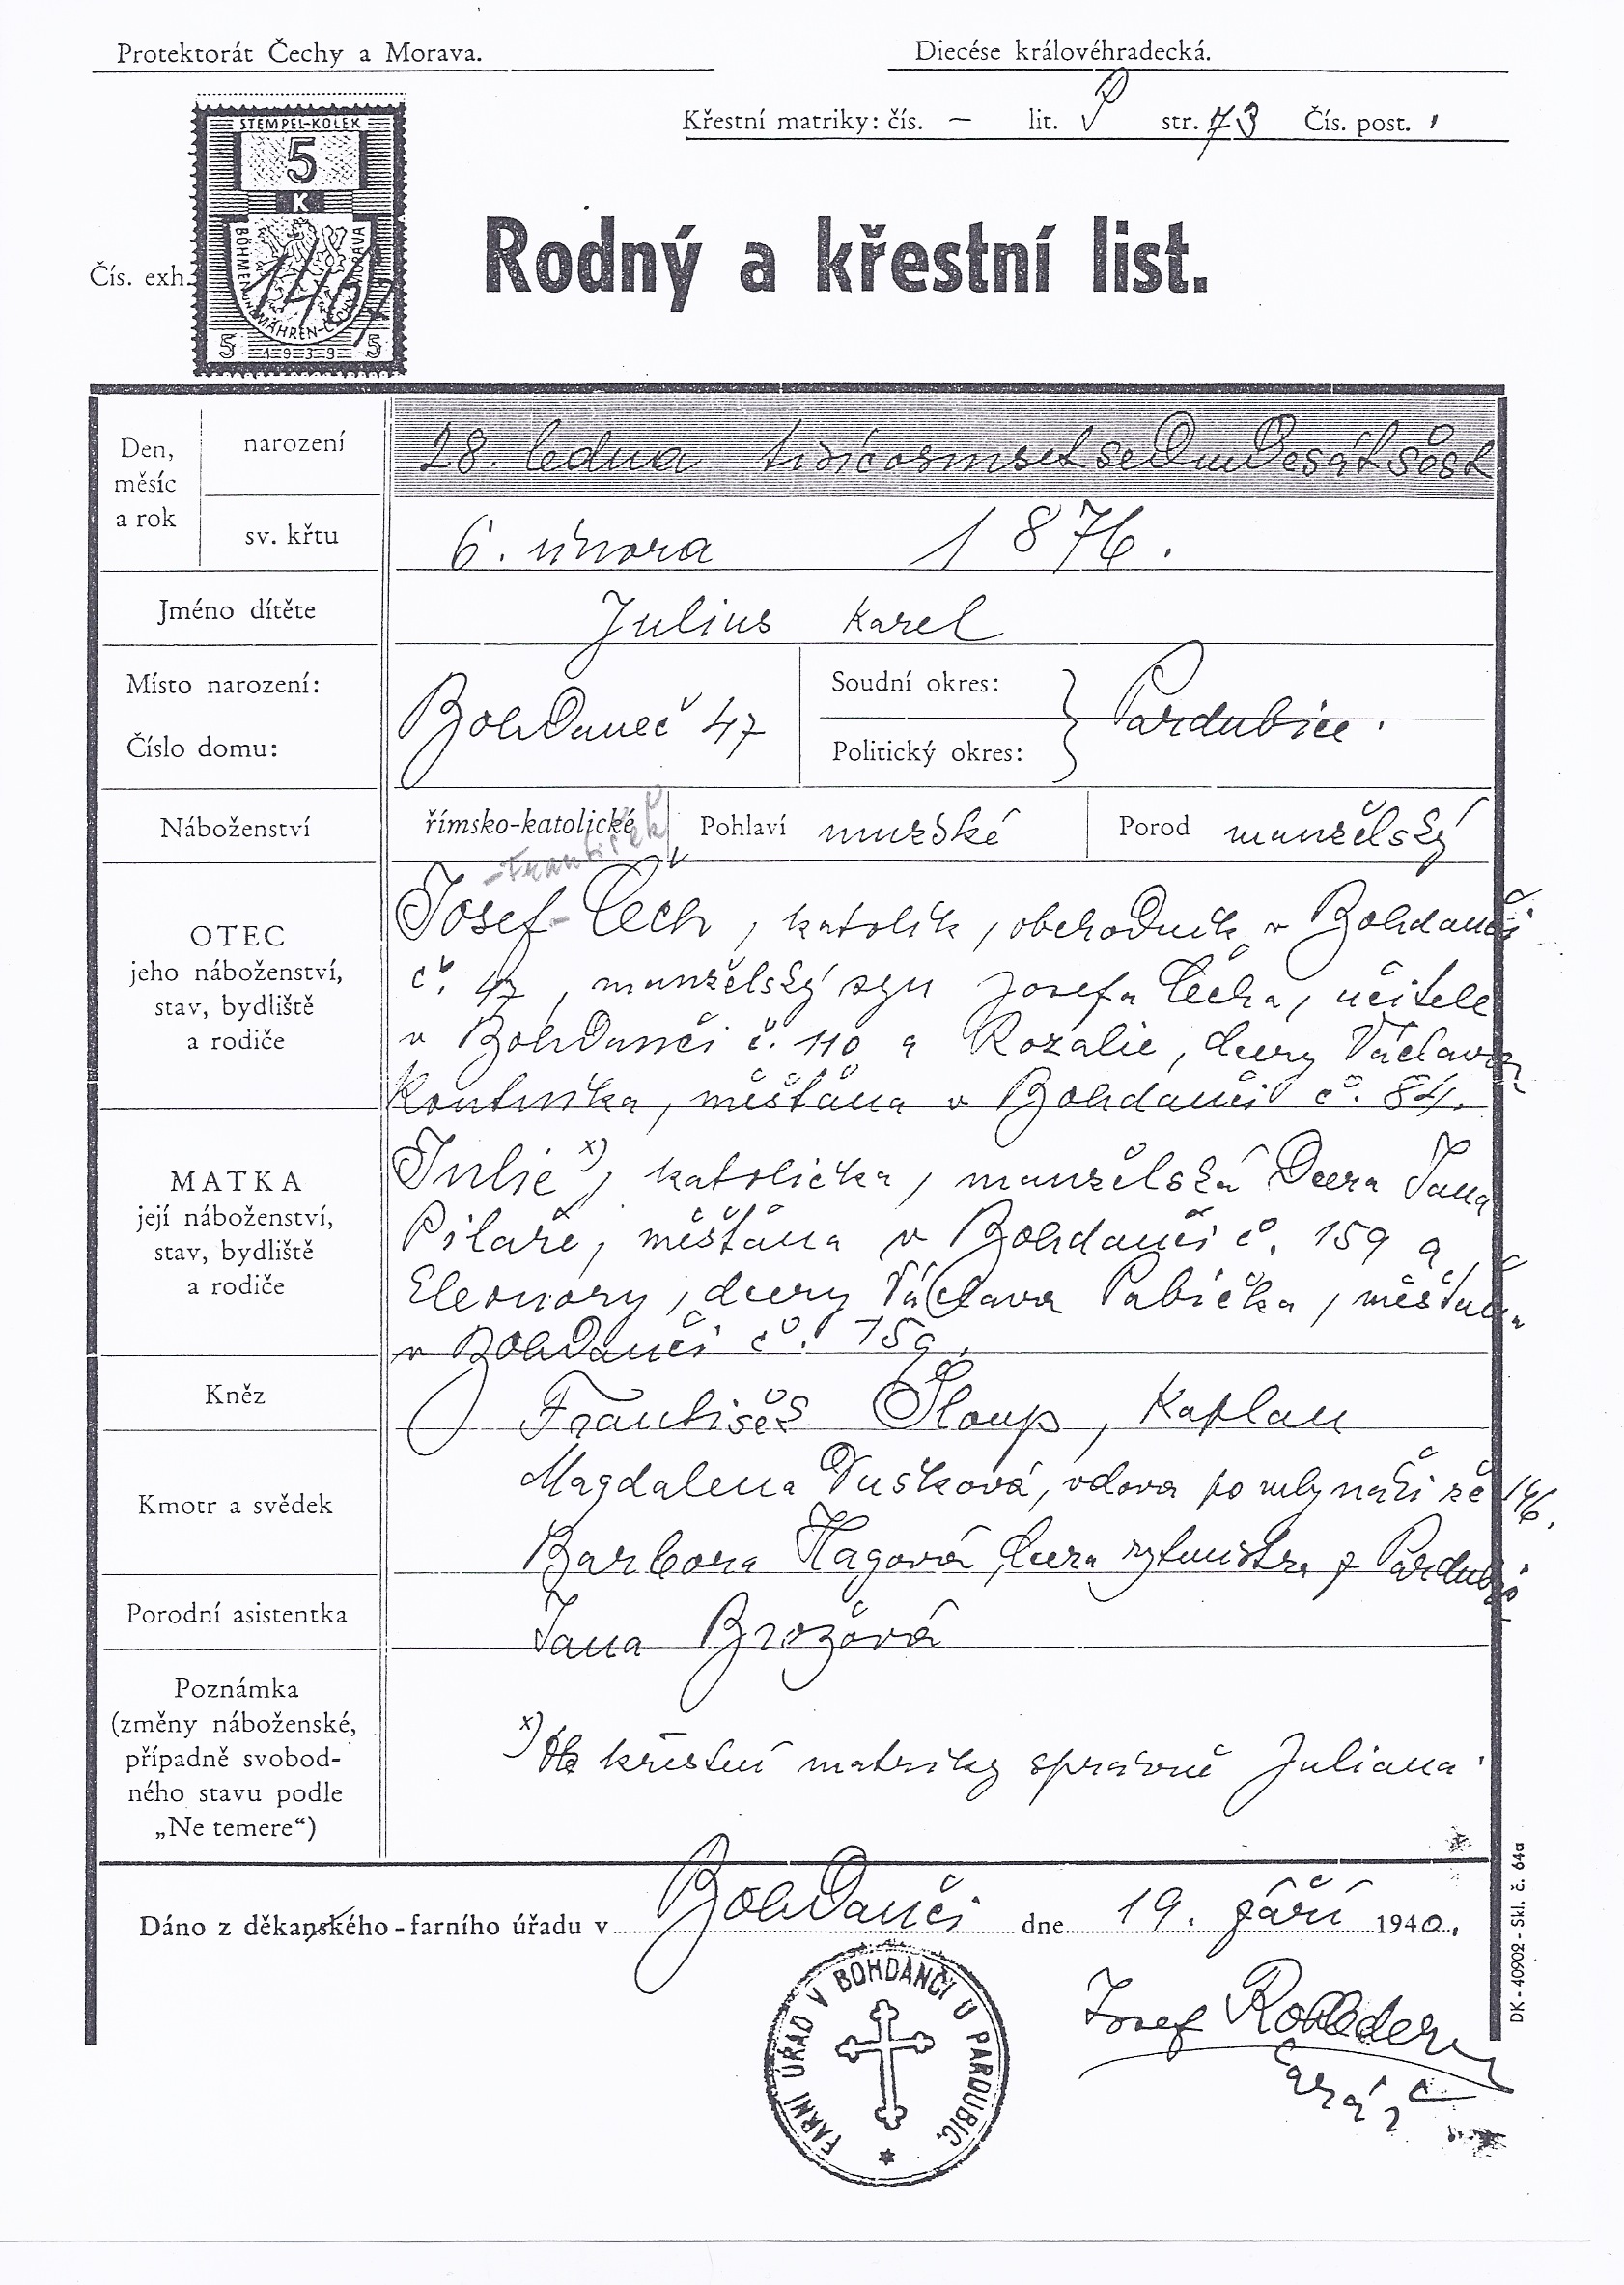 Protektorát Čechy a Morava.
Diecése královéhradecká.
Křestní matriky: čís. – lit. P str. 73 Čís. post. 1
STEMPEL-KOLEK
5
K
BÖHMEN
MÄHREN-ČECHY
MORAVA
5 1939 5
Čís. exh.
Rodný a křestní list.
Den, měsíc a rok
narození
28. ledna tisícosmsetsedmdesátšest
sv. křtu
6. února 1876.
Jméno dítěte
Julius Karel
Místo narození:
Číslo domu:
Bohdaneč 47
Soudní okres:
Politický okres:
Pardubice.
Náboženství
římsko-katolické
Pohlaví mužské
Porod manželský
-František
OTEC
jeho náboženství,
stav, bydliště
a rodiče
Josef Čech, katolík, obchodník v Bohdanči
č. 47, manželský syn Josefa Čecha, učitele
v Bohdanči č. 110 a Rozalie, dcery Václava
měšťána v Bohdanči č. 84.
MATKA
její náboženství,
stav, bydliště
a rodiče
Julie x), katolička, manželská dcera Jana
Pilaře, měšťána v Bohdanči č. 159 a
Eleonory, dcery Václava Pabíčka, měšťana
v Bohdanči č. 159.
Kněz
František Sloup, kaplan
Kmotr a svědek
Magdalena Dušková, vdova po mlynáři z č 146.
Barbora Hagová, dcera rytmistra z Pardubic
Porodní asistentka
Jana Brožová
Poznámka
(změny náboženské,
případně svobod-
ného stavu podle
„Ne temere“)
x) Dle křestní matriky správně Juliana.
Dáno z děkanského-farního úřadu v Bohdanči dne 19. září 1940.
FARNÍ ÚŘAD V BOHDANČI U PARDUBIC.
Josef
farář
DK - 40902 - Skl. č. 64a